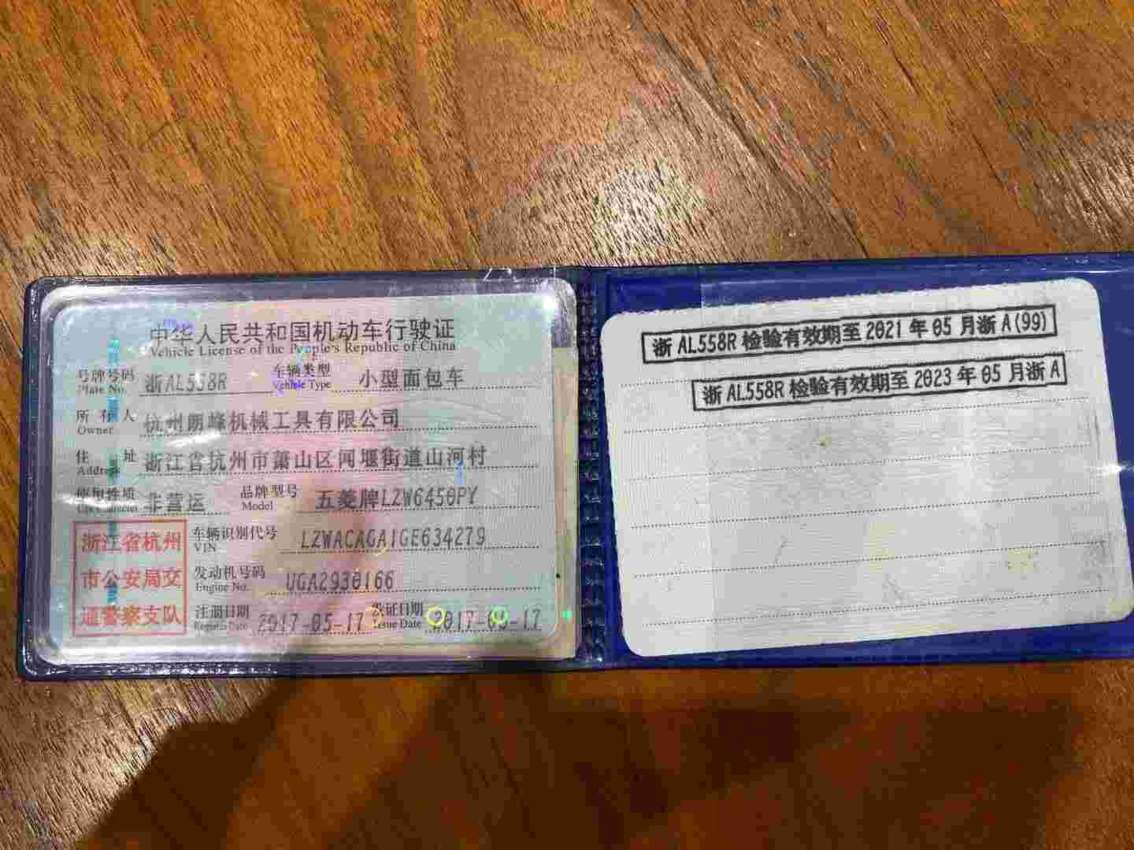 中华人民共和国机动车行驶证
Vehicle License of the People's Republic of China
号牌号码 Plate No. 浙AL558R 车辆类型 Vehicle Type 小型面包车
所有人 Owner 杭州朗峰机械工具有限公司
住址 Address 浙江省杭州市萧山区闻堰街道山河村
使用性质 Use Character 非营运 品牌型号 Model 五菱牌LZW6450PY
浙江省杭州
市公安局交
通警察支队
车辆识别代号 VIN LZWACAGA1GE634279
发动机号码 Engine No. UGA2930166
注册日期 Register Date 2017-05-17 发证日期 Issue Date 2017-05-17
浙AL558R检验有效期至2021年05月浙A(99)
浙AL558R检验有效期至2023年05月浙A